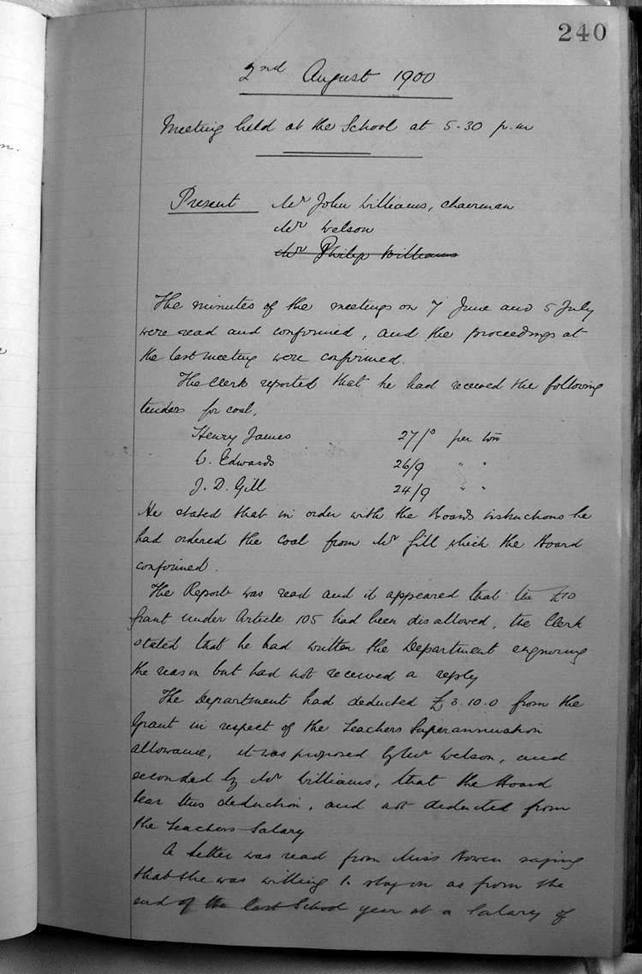 240
2nd August 1900
Meeting held at the School at 5.30 p.m
Present Mr John Williams, chairman
Mr Welson
Mr Philip Williams
The minutes of the meetings on 7 June and 5 July
were read and confirmed, and the proceedings at
the last meeting were confirmed.
The Clerk reported that he had received the following
tenders for coal,
Henry James 27/0 per ton
C. Edwards 26/9 " "
J. D. Gill 24/9 " "
He stated that in order with the Boards instructions he
had ordered the coal from Mr Gill which the Board
confirmed.
The Report was read and it appeared that the £10
Grant under Article 105 had been disallowed, the Clerk
stated that he had written the Department enquiring
the reason but had not received a reply
The Department had deducted £3.10.0 from the
Grant in respect of the Teachers Superannuation
allowance, it was proposed by Mr Welson, and
seconded by Mr Williams, that the Board
bear this deduction, and not deducted from
the Teachers Salary
A letter was read from Miss Bowen saying
that she was willing to stay on as from the
end of the last School year at a Salary of